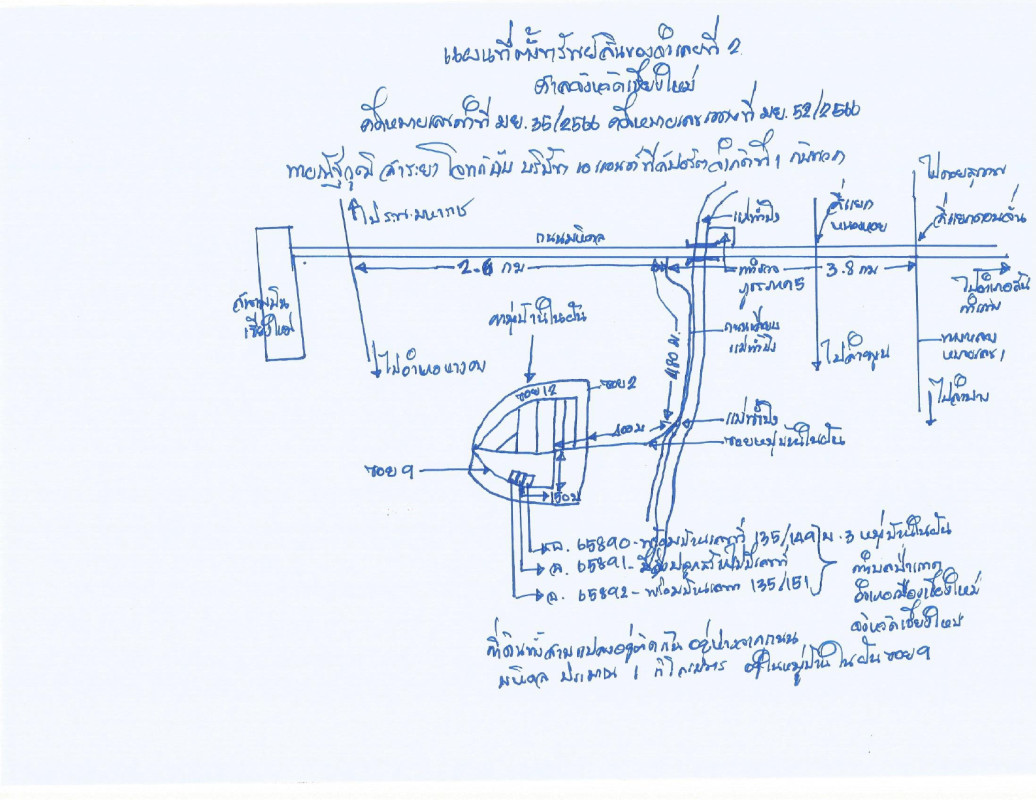 แผนที่ตั้งทรัพย์สินของจำเลยที่ 2
ศาลจังหวัดเชียงใหม่
คดีหมายเลขดำที่ มย. 35/2566 คดีหมายเลขแดงที่ มย. 52/2566
สาระยา โจทก์ กับ บริษัท จำกัด ที่ 1 กับพวก
ไปดอยสุเทพ
ไป รพ. มหาราช
แม่น้ำปิง
สี่แยก
หนองหอย
สี่แยกดอนจั่น
ถนนมหิดล
2.6 กม
3.8 กม
ภูธรภาค 5
ไปอำเภอสัน
กำแพง
สนามบิน
เชียงใหม่
หมู่บ้านในฝัน
ถนนเลียบ
แม่น้ำปิง
480 ม.
ไปลำพูน
ไปอำเภอหางดง
ไปลำปาง
ซอย 12
ซอย 2
400 ม
แม่น้ำปิง
ซอยหมู่บ้านในฝัน
ซอย 9
150 ม
ฉ. 65890 - พร้อมบ้านเลขที่ 135/149 ม. 3 หมู่บ้านในฝัน
ฉ. 65891 - มีสิ่งปลูกสร้างไม่มีเลขที่
ฉ. 65892 - พร้อมบ้านเลขที่ 135/151
ตำบลป่าแดด
อำเภอเมืองเชียงใหม่
จังหวัดเชียงใหม่
ที่ดินทั้งสามแปลงอยู่ติดกัน อยู่ห่างจากถนน
มหิดล ประมาณ 1 กิโลเมตร อยู่ในหมู่บ้านในฝัน ซอย 9